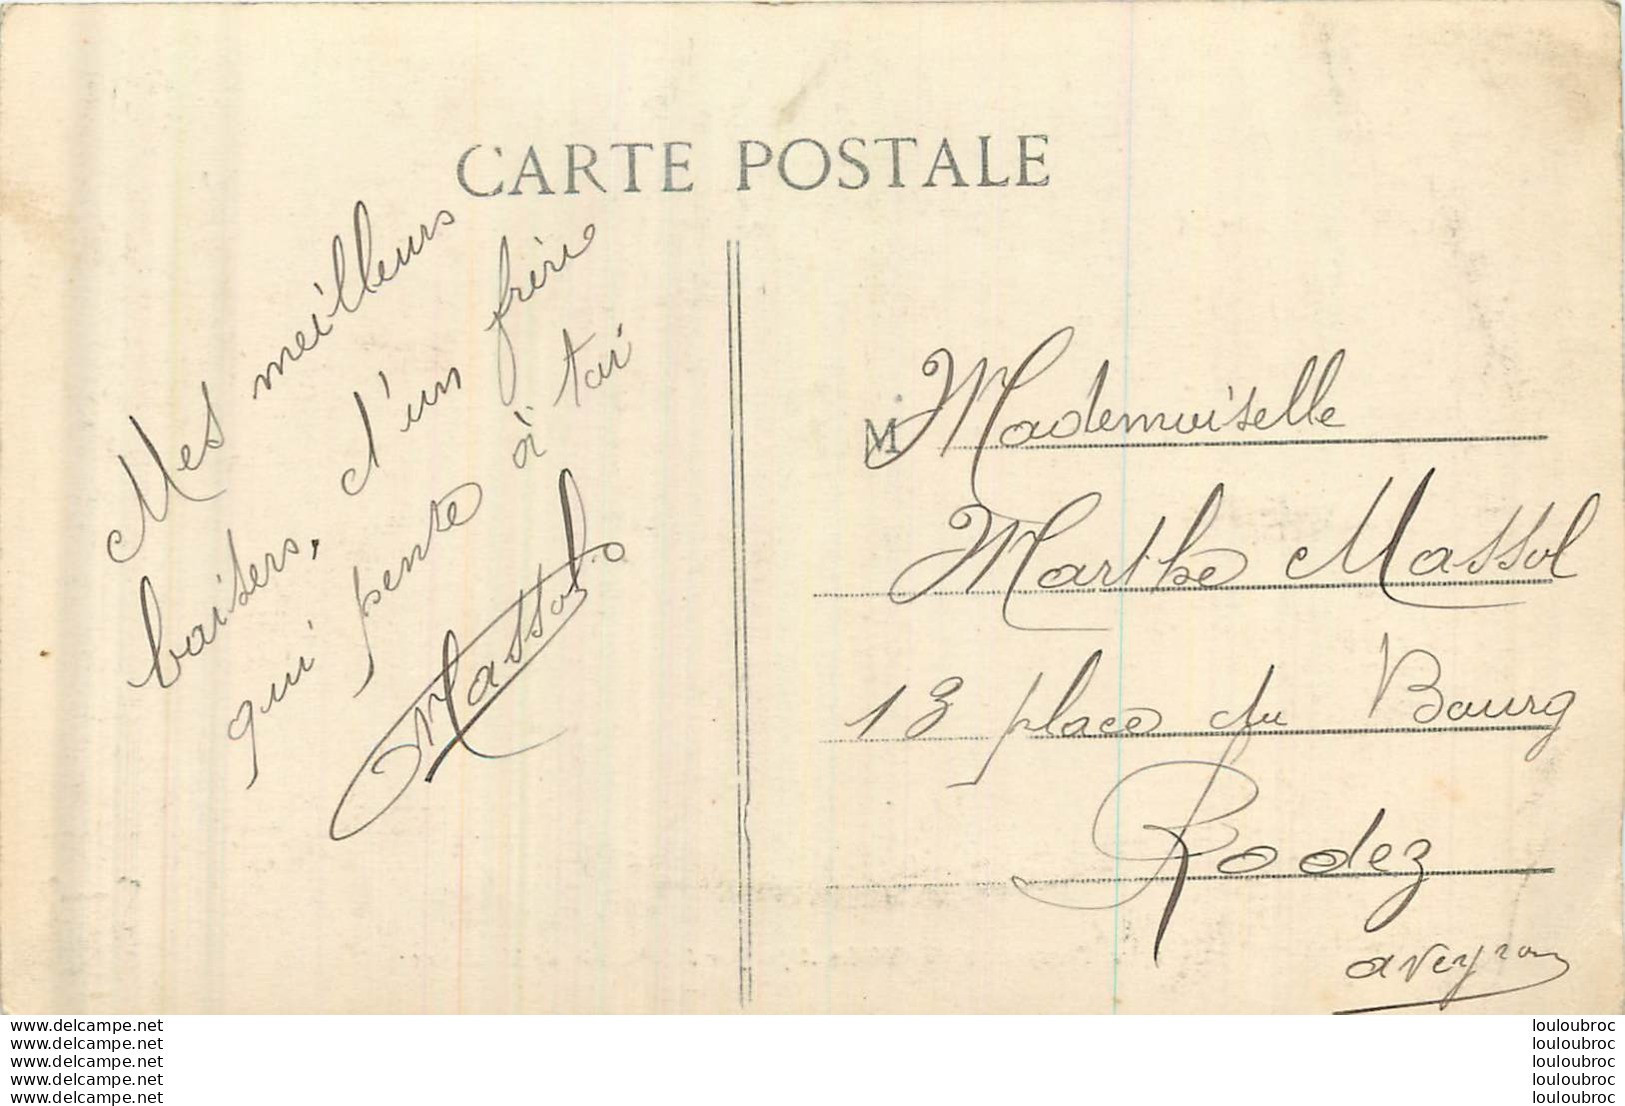 CARTE POSTALE
Mes meilleurs
baisers, d'un frère
qui pense à toi
Massol
M
Mademoiselle
Marthe Massol
13 place du Bourg
Rodez
aveyron
www.delcampe.net
www.delcampe.net
www.delcampe.net
www.delcampe.net
www.delcampe.net
louloubroc
louloubroc
louloubroc
louloubroc
louloubroc